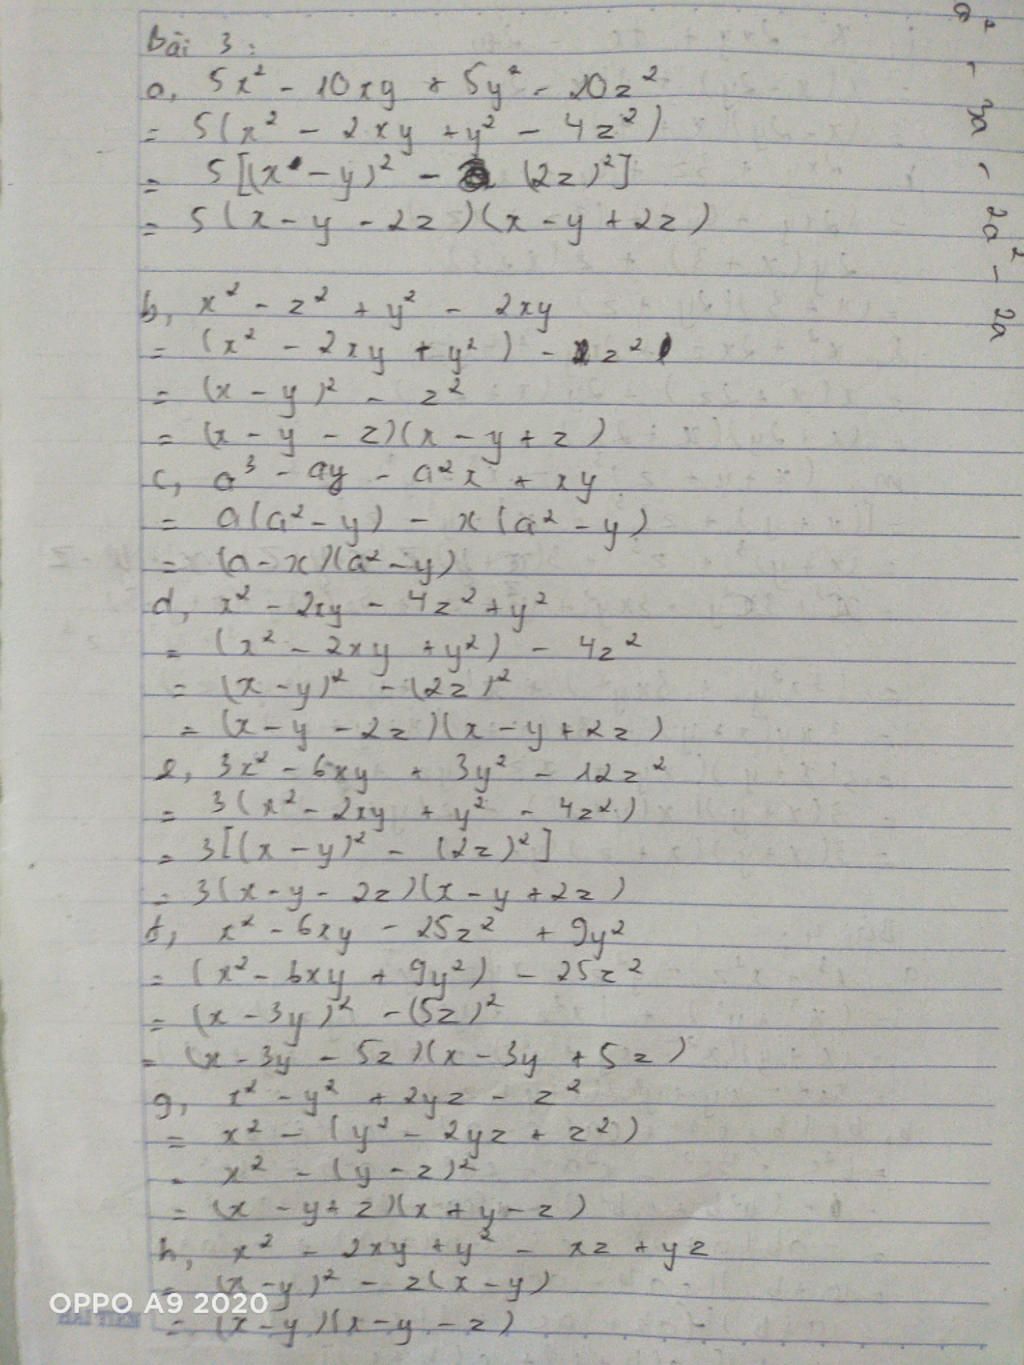 Bài 3:
a, 5x² - 10xy + 5y² - 20z²
= 5(x² - 2xy + y² - 4z²)
= 5[(x - y)² - (2z)²]
= 5(x - y - 2z)(x - y + 2z)
b, x² - z² + y² - 2xy
= (x² - 2xy + y²) - z²
= (x - y)² - z²
= (x - y - z)(x - y + z)
c, a³ - ay - a²x + xy
= a(a² - y) - x(a² - y)
= (a - x)(a² - y)
d, x² - 2xy - 4z² + y²
= (x² - 2xy + y²) - 4z²
= (x - y)² - (2z)²
= (x - y - 2z)(x - y + 2z)
e, 3x² - 6xy + 3y² - 12z²
= 3(x² - 2xy + y² - 4z²)
= 3[(x - y)² - (2z)²]
= 3(x - y - 2z)(x - y + 2z)
f, x² - 6xy - 25z² + 9y²
= (x² - 6xy + 9y²) - 25z²
= (x - 3y)² - (5z)²
= (x - 3y - 5z)(x - 3y + 5z)
g, x² - y² + 2yz - z²
= x² - (y² - 2yz + z²)
= x² - (y - z)²
= (x - y + z)(x + y - z)
h, x² - 2xy + y² - xz + yz
= (x - y)² - z(x - y)
= (x - y)(x - y - z)
a² - 3a - 2a² - 2a
OPPO A9 2020